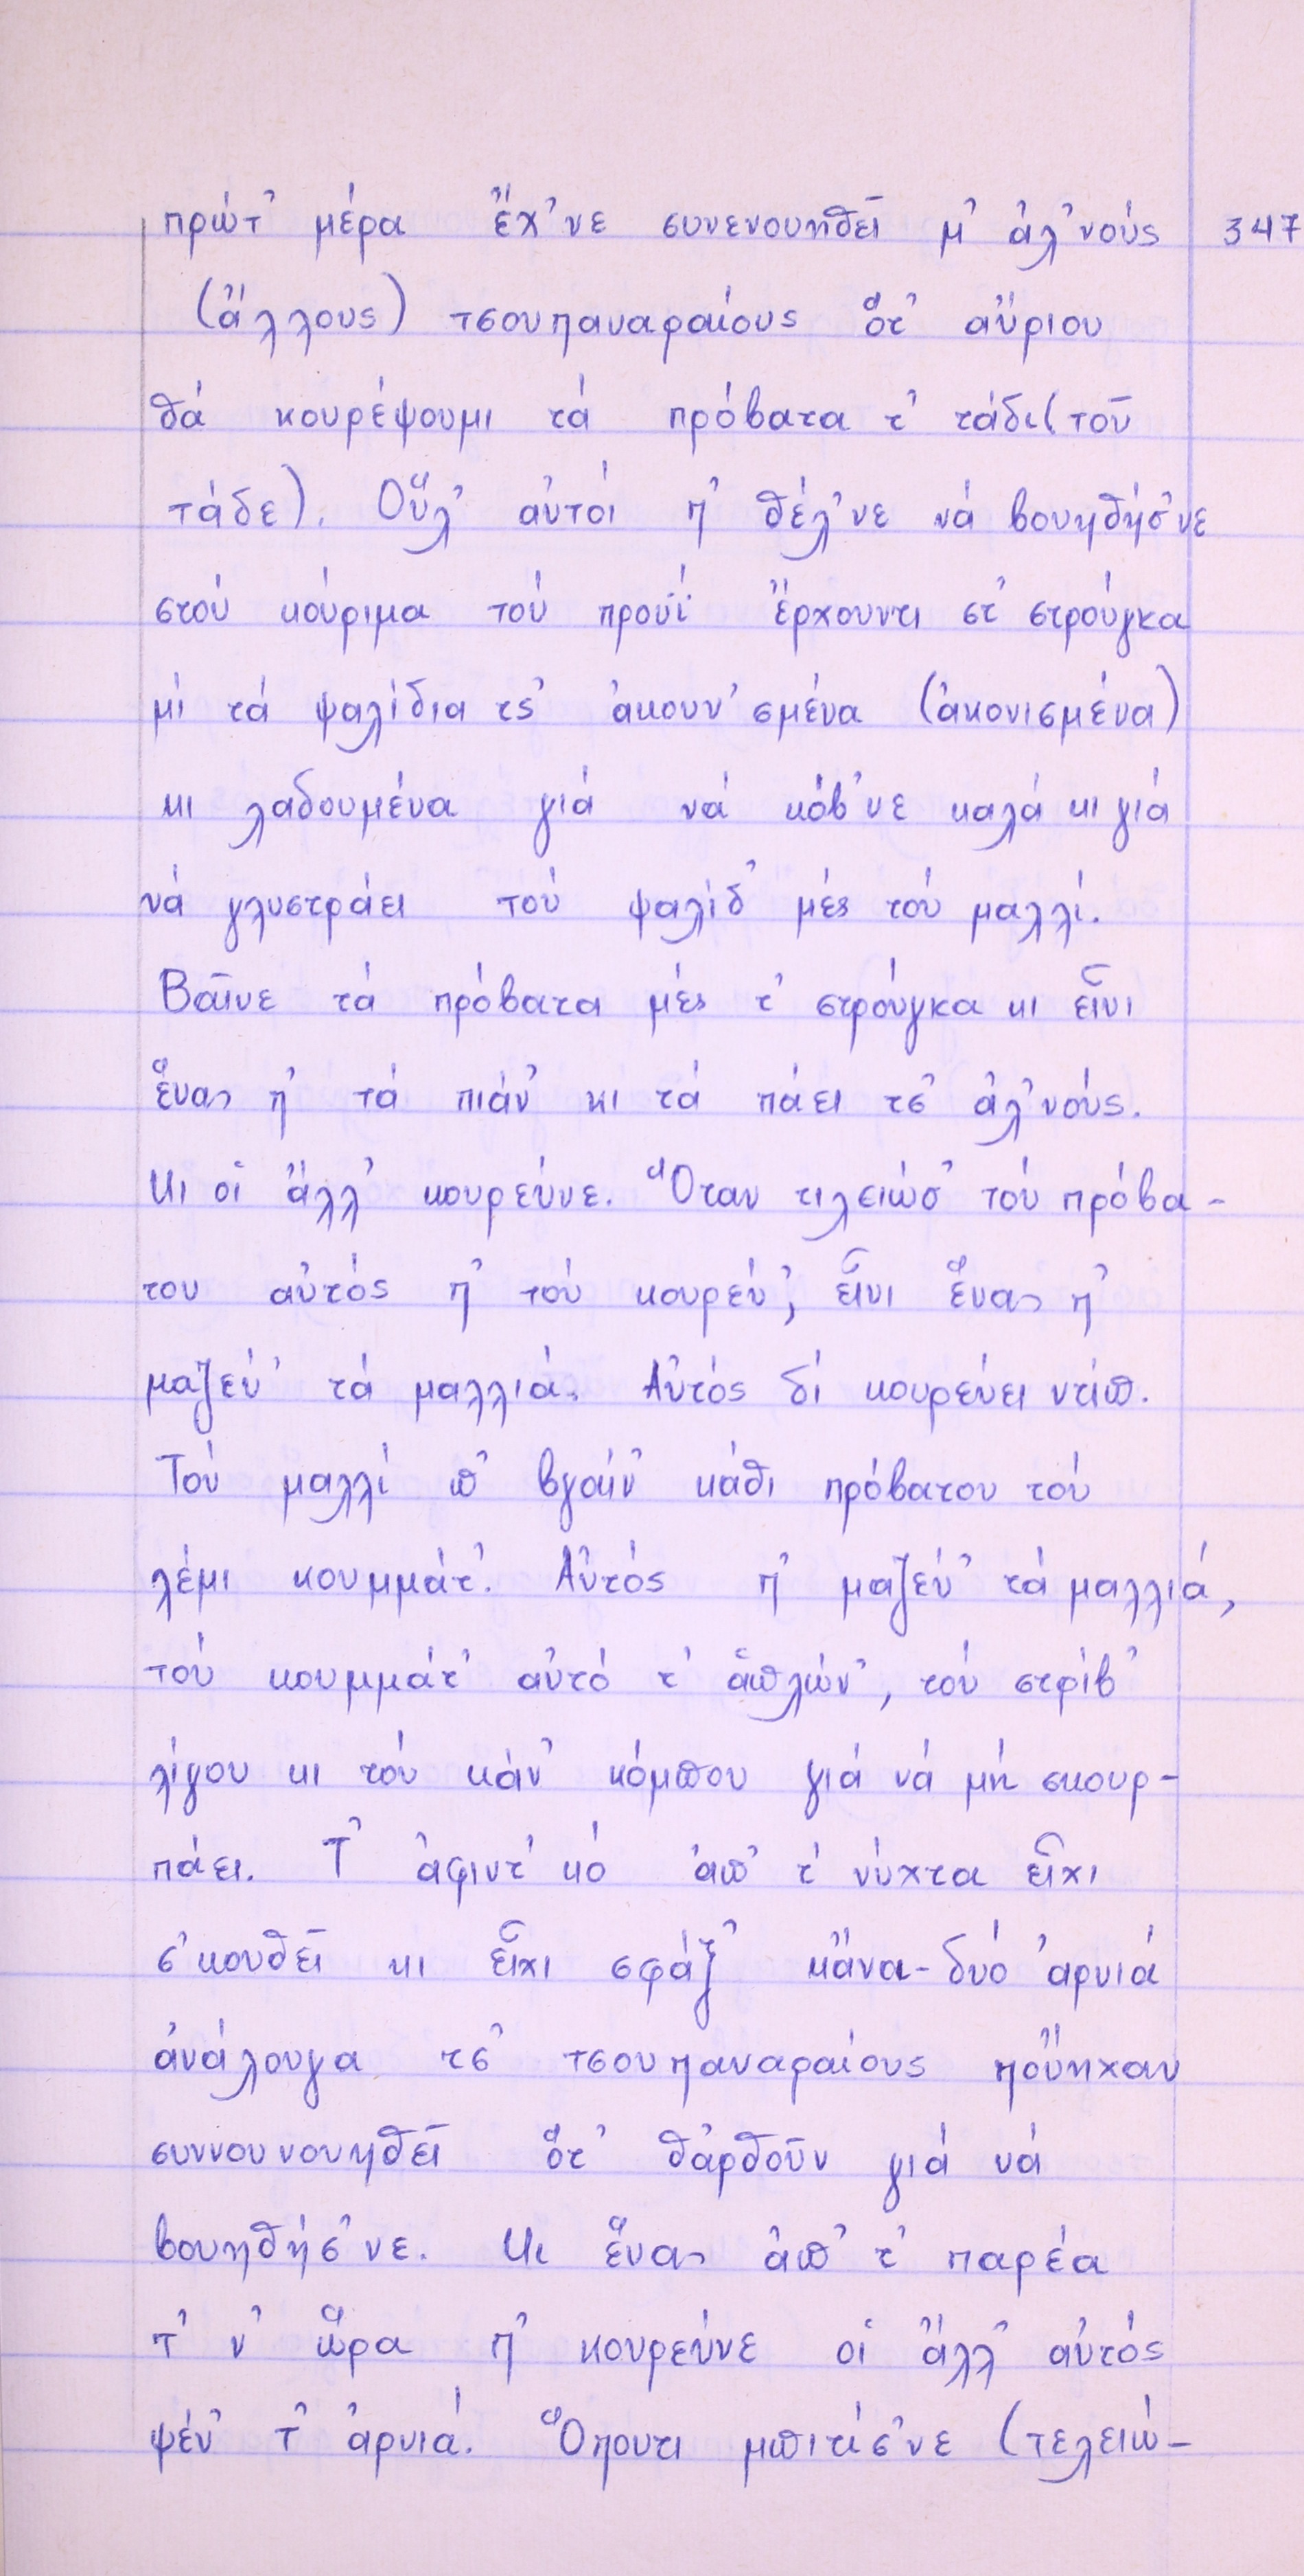 πρώτ' μέρα ἔχ'νε συνενουηθεῖ μ' ἀλ'νούς 347
(ἄλλους) τσουπαναραίους ὅτ' αὔριου
θά κουρέψουμι τά πρόβατα τ' τάδι (τοῦ
τάδε). Οὕλ' αὐτοί π' θέλ'νε νά βουηθήσ'νε
στού κούριμα τού προυΐ ἔρχουντι στ' στρούγκα
μί τά ψαλίδια τς' ἀκουν'σμένα (ἀκονισμένα)
κι λαδουμένα γιά νά κόβ'νε καλά κι γιά
νά γλυστράει τού ψαλίδ' μές τού μαλλί.
Βαῖνε τά πρόβατα μές τ' στρούγκα κι εἶνι
ἕνας π' τά πιάν' κι τά πάει τσ' ἀλ'νούς.
Κι οἱ ἄλλ' κουρεύνε. Ὅταν τιλειώσ' τού πρόβα-
του αὐτός π' τού κουρεύ', εἶνι ἕνας π'
μαζεύ' τά μαλλιά. Αὐτός δί κουρεύει ντίπ.
Τού μαλλί π' βγαίν' κάθι πρόβατου τού
λέμι κουμμάτ'. Αὐτός π' μαζεύ' τά μαλλιά,
τού κουμμάτ' αὐτό τ' ἁπλών', τού στρίβ'
λίγου κι τού κάν' κόμπου γιά νά μή σκουρ-
πάει. Τ' ἀφιντ'κό ἀπ' τ' νύχτα εἶχι
σ'κουθεῖ κι εἶχι σφάξ' κἄνα-δυό ἀρνιά
ἀνάλουγα τσ' τσουπαναραίους ποὔηχαν
συννουνουηθεῖ ὅτ' θἀρθοῦν γιά νά
βουηθήσ'νε. Κι ἕνας ἀπ' τ' παρέα
τ' ν' ὥρα π' κουρεύνε οἱ ἄλλ' αὐτός
ψέν' τ' ἀρνιά. Ὅπουτι μπιτίσ'νε (τελειώ-